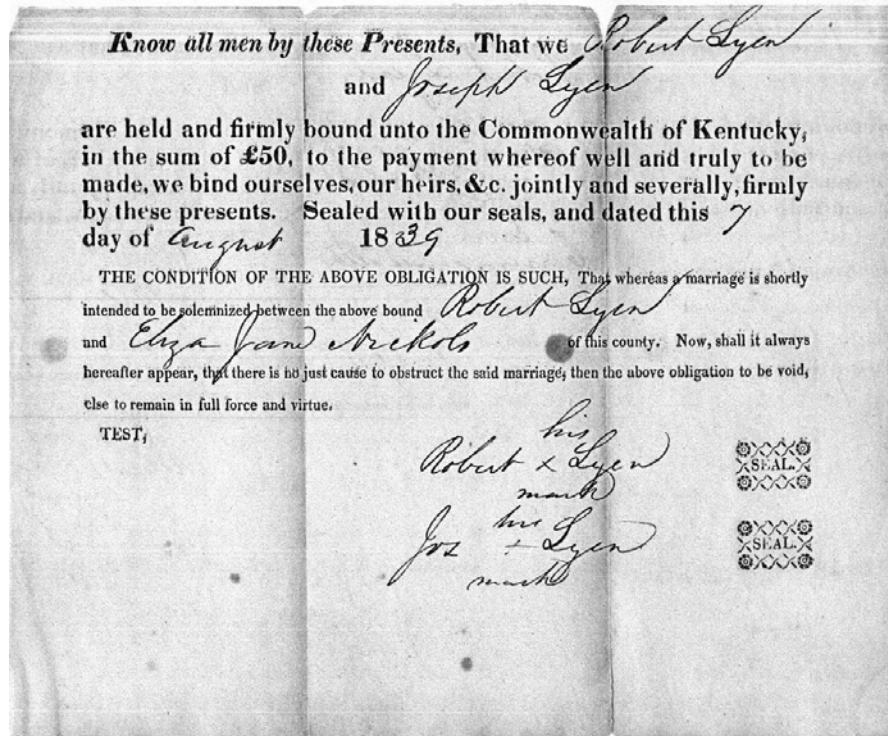 Know all men by these Presents, That we Robert Lyen
and Joseph Lyen
are held and firmly bound unto the Commonwealth of Kentucky,
in the sum of £50, to the payment whereof well and truly to be
made, we bind ourselves, our heirs, &c. jointly and severally, firmly
by these presents. Sealed with our seals, and dated this 7
day of August 1839
THE CONDITION OF THE ABOVE OBLIGATION IS SUCH, That whereas a marriage is shortly
intended to be solemnized between the above bound Robert Lyen
and Eliza Jane Nickols of this county. Now, shall it always
hereafter appear, that there is no just cause to obstruct the said marriage, then the above obligation to be void,
else to remain in full force and virtue.
TEST,
his
Robert x Lyen SEAL.
mark
his
Jos + Lyen SEAL.
mark